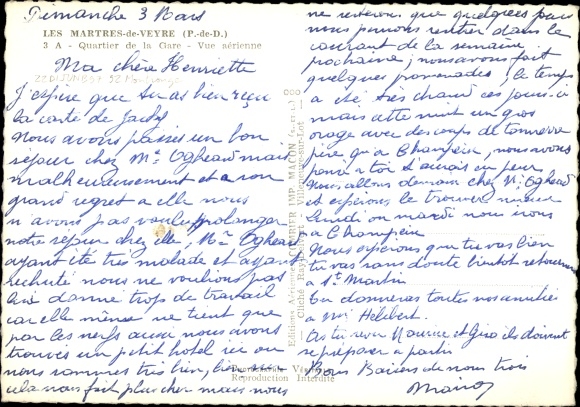 Dimanche 3 Mars
LES MARTRES-de-VEYRE (P.-de-D.)
3 A - Quartier de la Gare - Vue aérienne
Ma chère Henriette
J'espère que tu as bien reçu
la carte de
Nous avons passés un bon
séjour chez Mr Ogheard mais
malheureusement et a son
grand regret a elle nous
n'avons pas voulu prolonger
notre séjour chez elle, Mr Ogheard
ayant été très malade et ayant
rechuté nous ne voulions pas
lui donné trop de travail
car elle même ne tient que
par les nerfs aussi nous avons
trouvés un petit hotel ici ou
nous sommes très bien, bien sur
cela nous fait plus cher mais nous
ne resterons que quelques jours
nous pensons rentrer dans le
courant de la semaine
prochaine, nous avons fait
quelques promenades, le temps
a été très chaud ces jours-ci
mais cette nuit un gros
orage avec des coups de tonnerre
pire qu'a Champeix, nous avons
pensé a toi t'aurais eu peur
Nous allons demain chez Mr Ogheard
et espérons le trouver mieux
Lundi ou mardi nous irons
a Champeix
Nous espérons que tu vas bien
tu vas sans doute bientot retourner
a St Martin
Tu donneras toutes nos amitiés
a Mme
As tu revu Maurice et ils doivent
se préparer a partir
Bons Baisers de nous trois
Editions Aériennes COMBIER IMP. MACON
Cliché Ray-Delvert - Villeneuve-sur-Lot
Reproduction Interdite